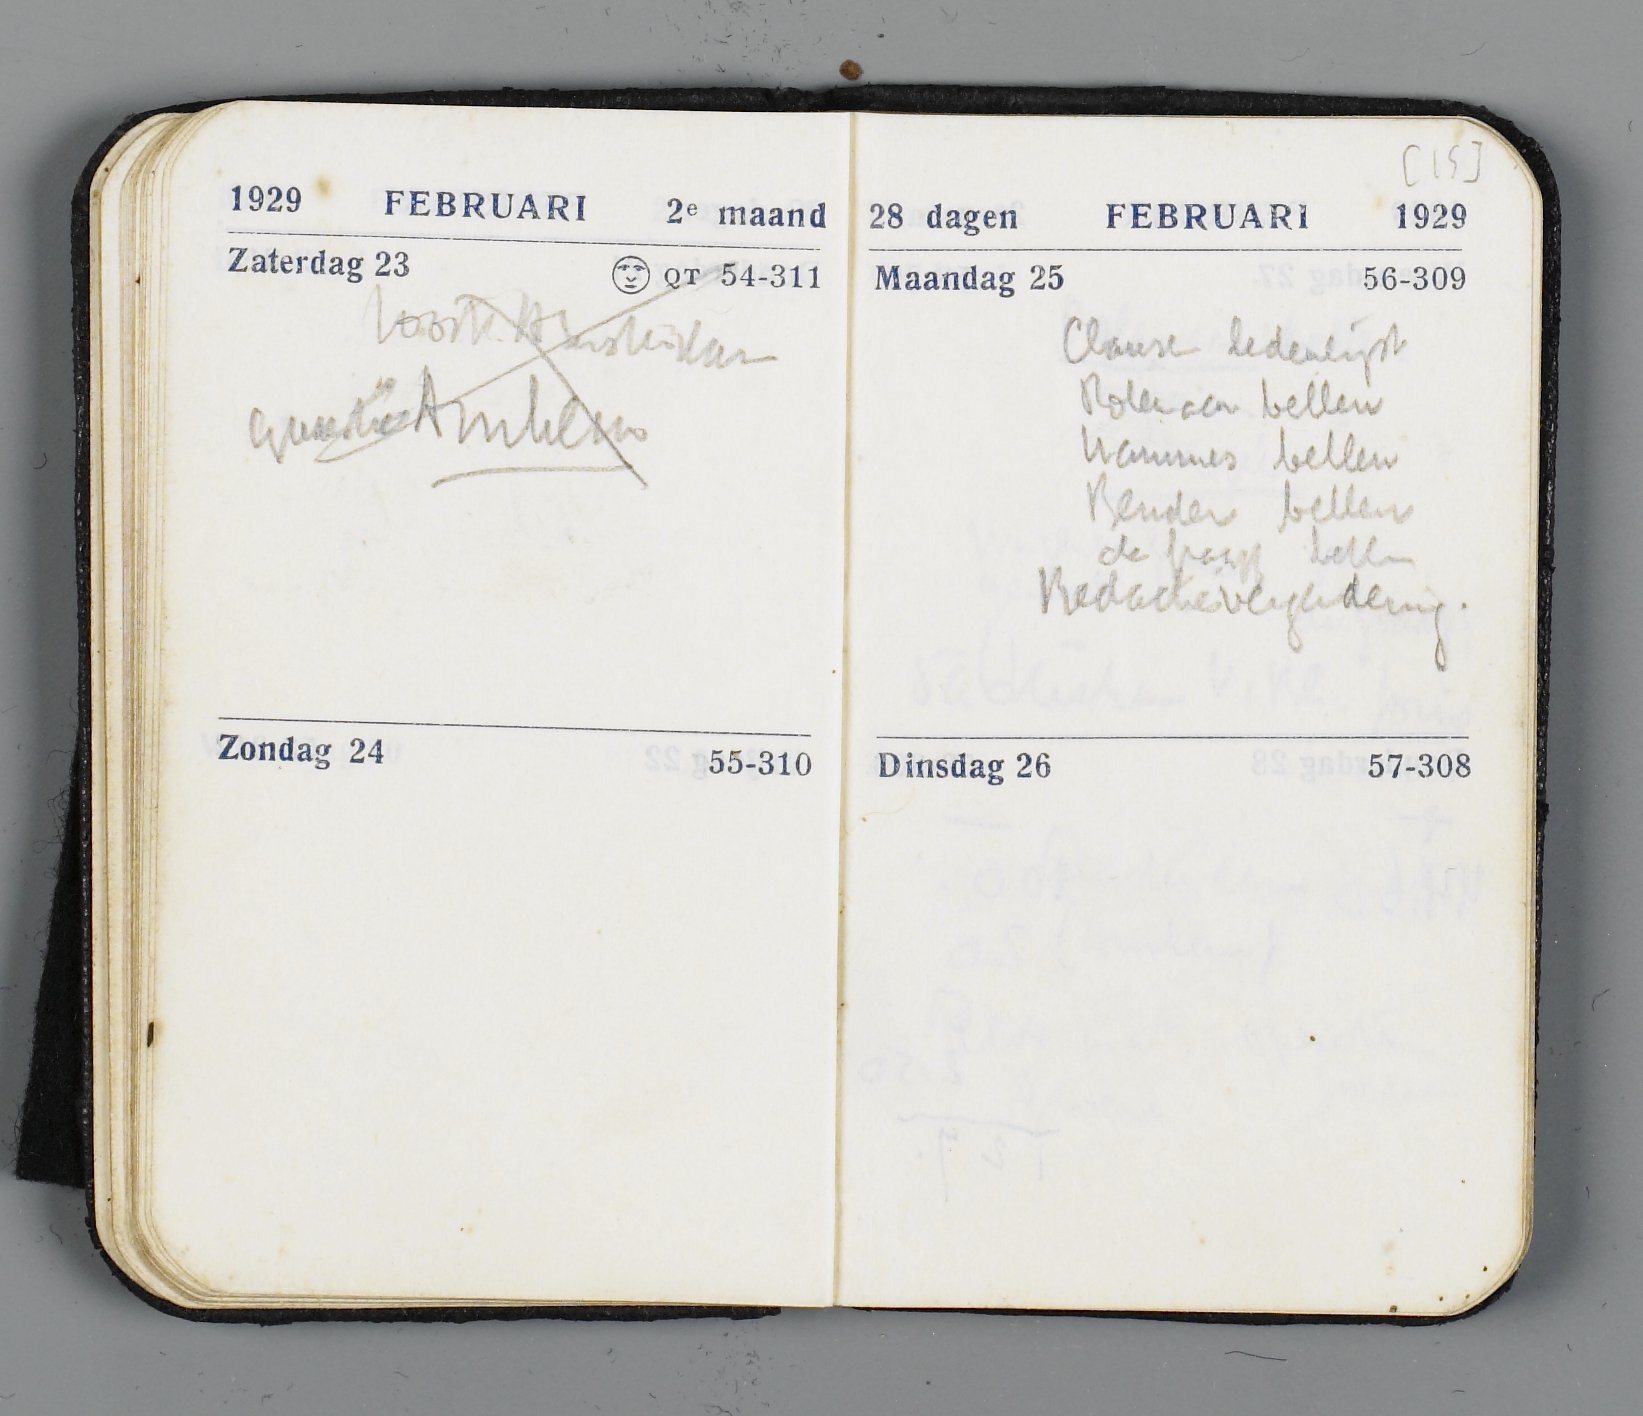 1929 FEBRUARI 2e maand
Zaterdag 23 QT 54-311
Arnhem
Zondag 24 55-310
[15]
28 dagen FEBRUARI 1929
Maandag 25 56-309
ledenlijst
bellen
Wammes bellen
Bender bellen
de bellen
Redactievergadering.
Dinsdag 26 57-308